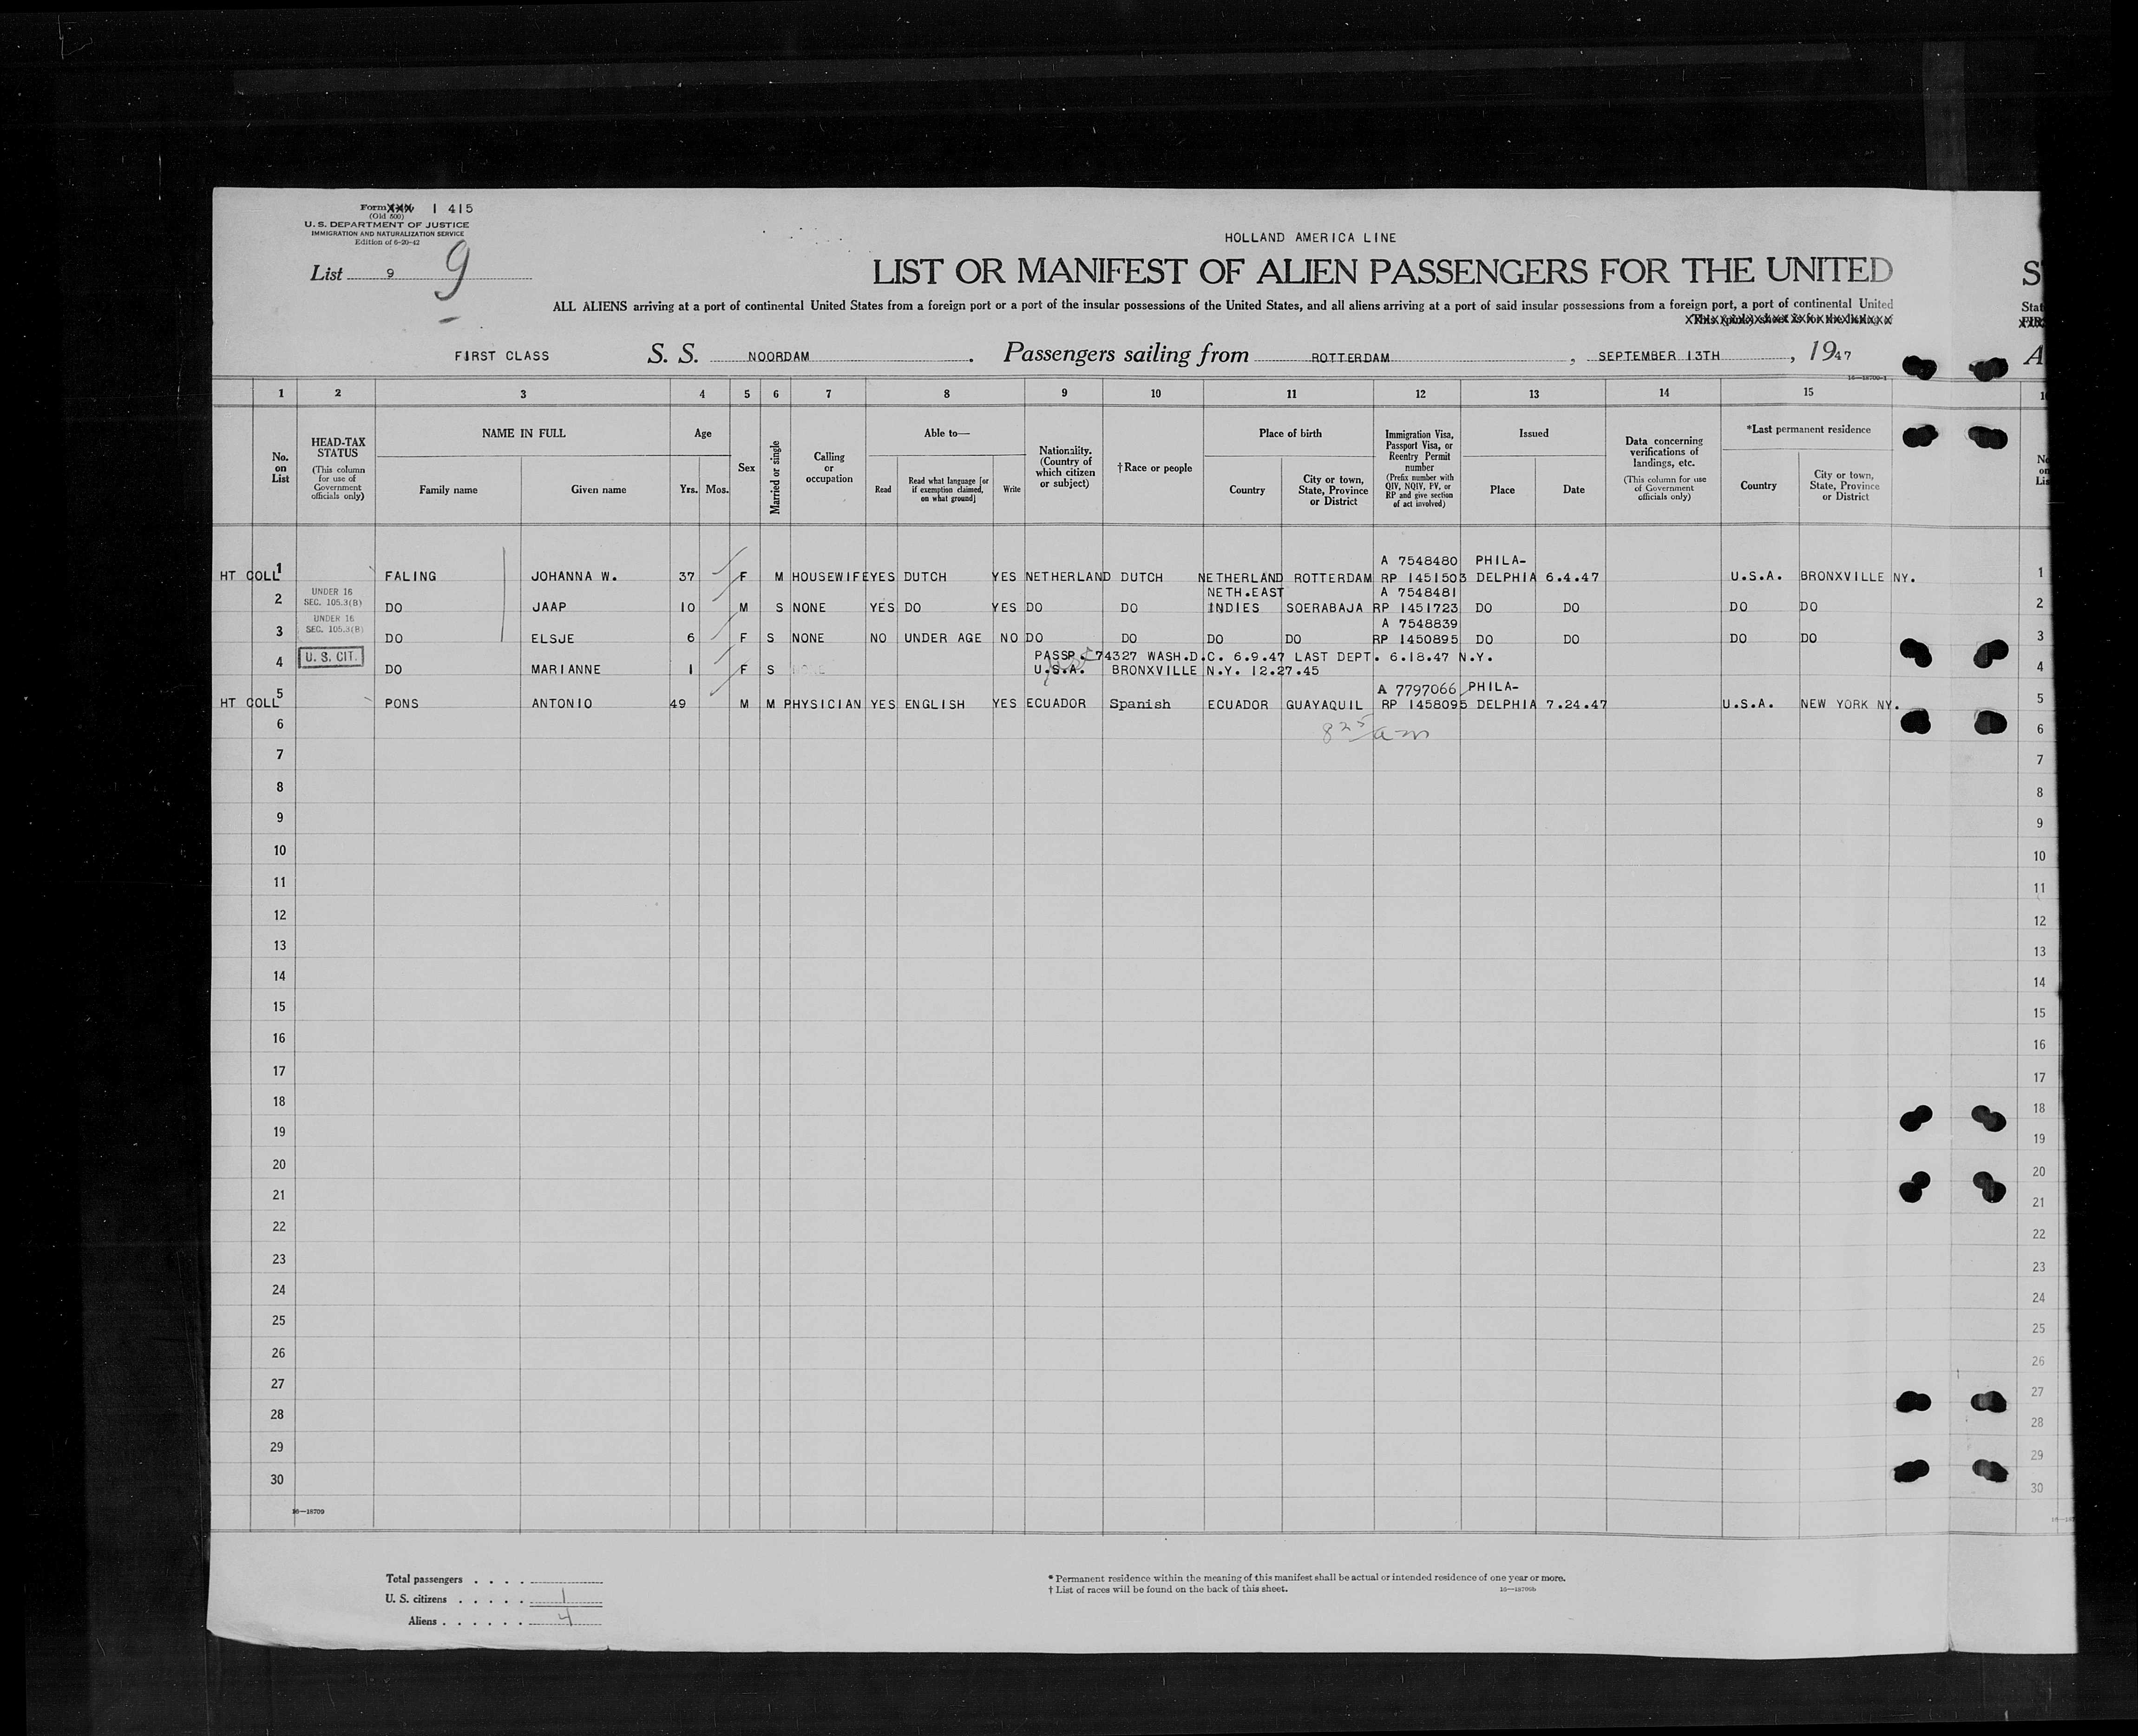 Form XXX I 415
(Old 500)
U. S. DEPARTMENT OF JUSTICE
IMMIGRATION AND NATURALIZATION SERVICE
Edition of 6-20-42
List 9 9
HOLLAND AMERICA LINE
LIST OR MANIFEST OF ALIEN PASSENGERS FOR THE UNITED
ALL ALIENS arriving at a port of continental United States from a foreign port or a port of the insular possessions of the United States, and all aliens arriving at a port of said insular possessions from a foreign port, a port of continental United
FIRST CLASS S. S. NOORDAM. Passengers sailing from ROTTERDAM, SEPTEMBER 13TH, 1947
16—18709-1
1 2 3 4 5 6 7 8 9 10 11 12 13 14 15
No. on List
HEAD-TAX STATUS
(This column for use of Government officials only)
NAME IN FULL
Family name
Given name
Age
Yrs. Mos.
Sex
Married or single
Calling or occupation
Able to—
Read
Read what language [or if exemption claimed, on what ground]
Write
Nationality. (Country of which citizen or subject)
†Race or people
Place of birth
Country
City or town, State, Province or District
Immigration Visa, Passport Visa, or Reentry Permit number
(Prefix number with QIV, NQIV, PV, or RP and give section of act involved)
Issued
Place
Date
Data concerning verifications of landings, etc.
(This column for use of Government officials only)
*Last permanent residence
Country
City or town, State, Province or District
A 7548480 PHILA-
HT COLL 1 FALING JOHANNA W. 37 F M HOUSEWIFE YES DUTCH YES NETHERLAND DUTCH NETHERLAND ROTTERDAM RP 1451503 DELPHIA 6.4.47 U.S.A. BRONXVILLE NY. 1
UNDER 16 NETH.EAST A 7548481
2 SEC. 105.3(B) DO JAAP 10 M S NONE YES DO YES DO DO INDIES SOERABAJA RP 1451723 DO DO DO DO 2
UNDER 16 A 7548839
3 SEC. 105.3(B) DO ELSJE 6 F S NONE NO UNDER AGE NO DO DO DO DO RP 1450895 DO DO DO DO 3
U. S. CIT. PASSP. 74327 WASH.D.C. 6.9.47 LAST DEPT. 6.18.47 N.Y.
4 DO MARIANNE 1 F S U.S.A. BRONXVILLE N.Y. 12.27.45 4
A 7797066 PHILA-
HT COLL 5 PONS ANTONIO 49 M M PHYSICIAN YES ENGLISH YES ECUADOR Spanish ECUADOR GUAYAQUIL RP 1458095 DELPHIA 7.24.47 U.S.A. NEW YORK NY. 5
6 8 25 am 6
7 7
8 8
9 9
10 10
11 11
12 12
13 13
14 14
15 15
16 16
17 17
18 18
19 19
20 20
21 21
22 22
23 23
24 24
25 25
26 26
27 27
28 28
29 29
30 30
16—18709
Total passengers . . . .
U. S. citizens . . . . . 1
Aliens . . . . . . 4
* Permanent residence within the meaning of this manifest shall be actual or intended residence of one year or more.
† List of races will be found on the back of this sheet.